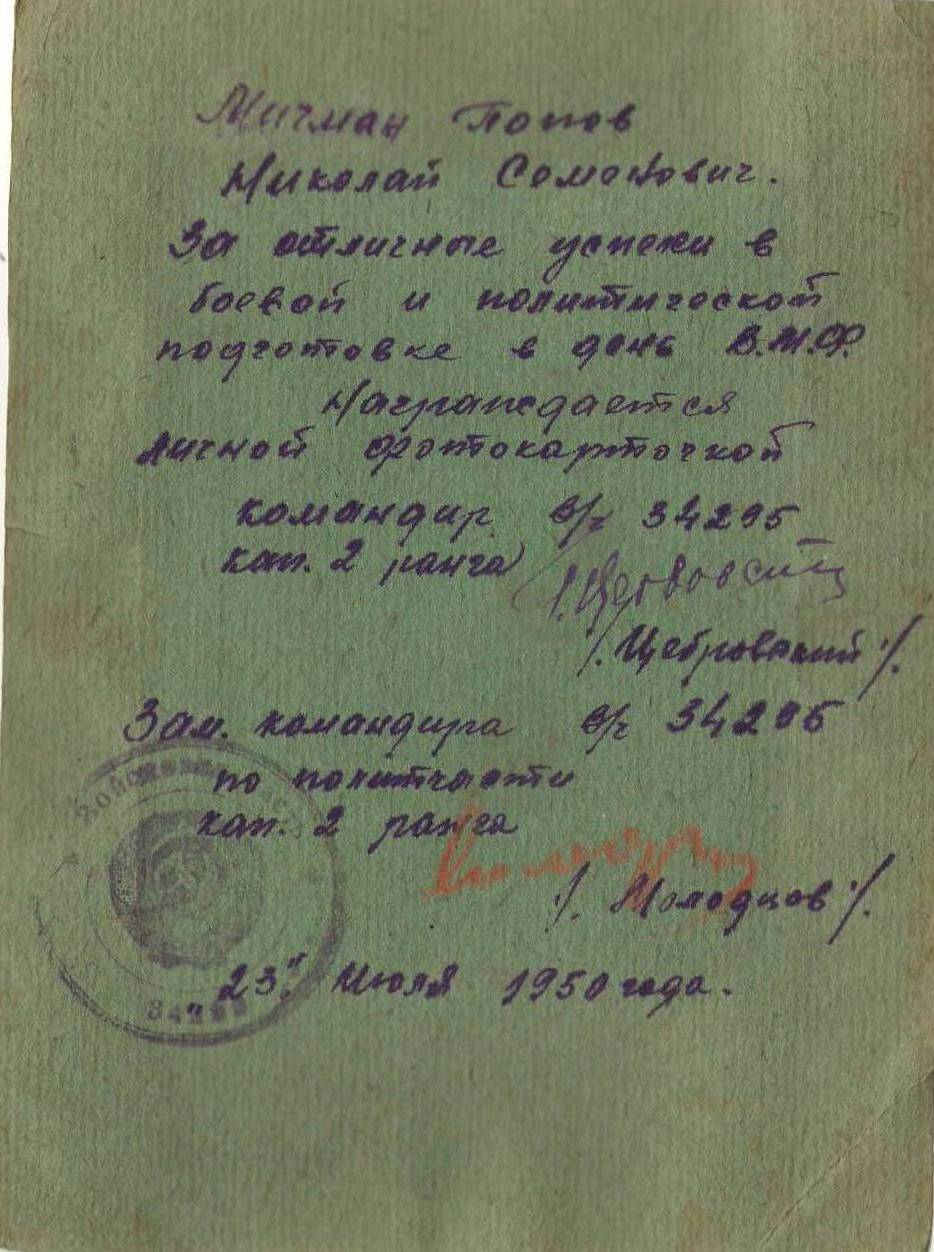 Мичман Попов
Николай Семенович.
За отличные успехи в
боевой и политической
подготовке в день В.М.Ф.
Награждается
личной фотокарточкой
командир в/ч 34205
кап. 2 ранга
/. Цебровский ./.
Зам. командира в/ч 34205
по политчасти
кап. 2 ранга
./. Молодцов ./.
"23" Июля 1950 года.